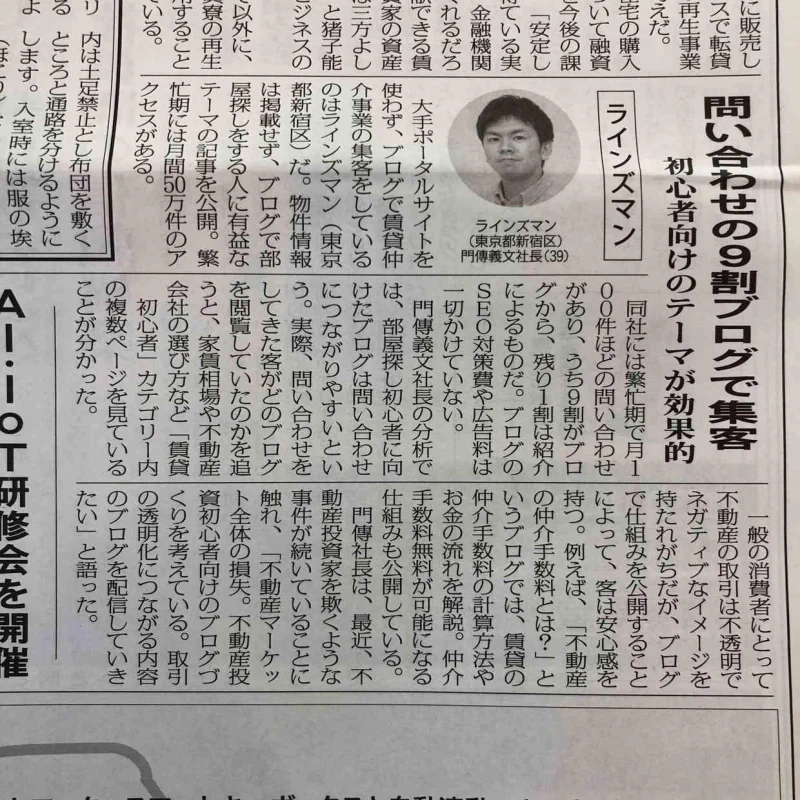 問い合わせの9割ブログで集客
初心者向けのテーマが効果的
ラインズマン
ラインズマン
(東京都新宿区)
門傳義文社長(39)
大手ポータルサイトを
使わず、ブログで賃貸仲
介事業の集客をしている
のはラインズマン(東京
都新宿区)だ。物件情報
は掲載せず、ブログで部
屋探しをする人に有益な
テーマの記事を公開。繁
忙期には月間50万件のア
クセスがある。
同社には繁忙期で月1
00件ほどの問い合わせ
があり、うち9割がブロ
グから、残り1割は紹介
によるものだ。ブログの
SEO対策費や広告料は
一切かけていない。
門傳義文社長の分析で
は、部屋探し初心者に向
けたブログは問い合わせ
につながりやすいとい
う。実際、問い合わせを
してきた客がどのブログ
を閲覧していたのかを追
うと、家賃相場や不動産
会社の選び方など「賃貸
初心者」カテゴリー内
の複数ページを見ている
ことが分かった。
一般の消費者にとって
不動産の取引は不透明で
ネガティブなイメージを
持たれがちだが、ブログ
で仕組みを公開すること
によって、客は安心感を
持つ。例えば、「不動産
の仲介手数料とは?」と
いうブログでは、賃貸の
仲介手数料の計算方法や
お金の流れを解説。仲介
手数料無料が可能になる
仕組みも公開している。
門傳社長は、最近、不
動産投資家を欺くような
事件が続いていることに
触れ、「不動産マーケッ
ト全体の損失。不動産投
資初心者向けのブログづ
くりを考えている。取引
の透明化につながる内容
のブログを配信していき
たい」と語った。
に販売し
スで転貸
再生事業
えだ。
宅の購入
いて融資
今後の課
「安定し
得ている実
金融機関
くれるだろ
献できる賃
貸家の資産
は三方よし
と猪子能
ビジネスの
て以外に、
寮の再生
用すること
ている。
内は土足禁止とし布団を敷く
ところと通路を分けるように
します。入室時には服の埃
AI・IoT研修会を開催